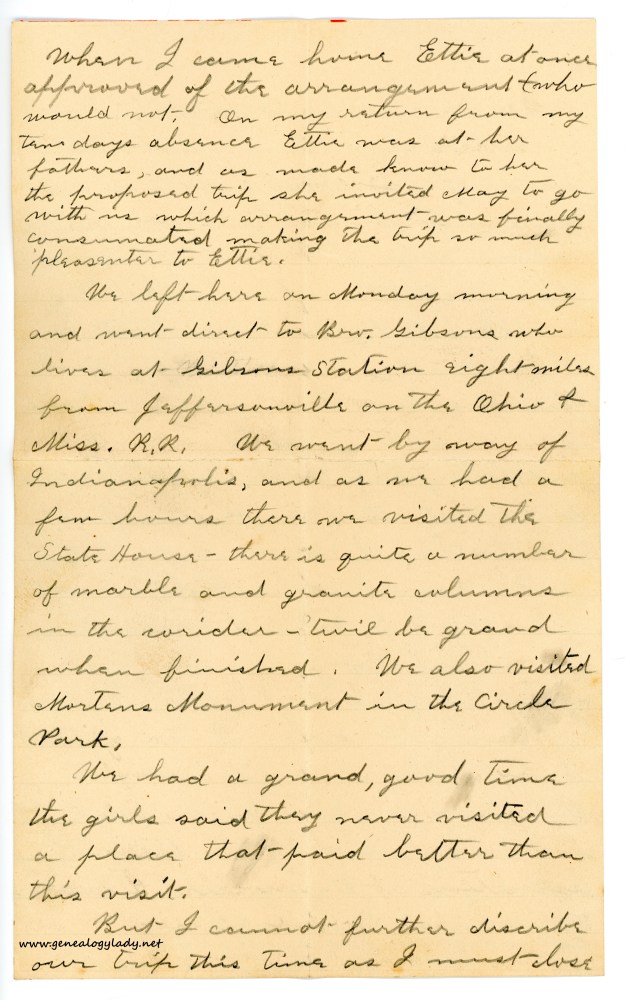 When I came home Ettie at once
approved of the arrangement (who
would not. On my return from my
tens days absence Ettie was at her
fathers, and as made know to her
the proposed trip she invited May to go
with us which arrangement was finally
consumated making the trip so much
pleasenter to Ettie.
We left here on Monday morning
and went direct to Bro. Gibsons who
lives at Gibsons Station eight miles
from Jeffersonville on the Ohio &
Miss. R.R. We went by way of
Indianapolis, and as we had a
few hours there we visited the
State House - there is quite a number
of marble and granite columns
in the corider - twil be grand
when finished. We also visited
Mortens Monument in the Circle
Park.
We had a grand, good time
the girls said they never visited
a place that paid better than
this visit.
But I cannot further discribe
www.genealogylady.net
our trip this time as I must close